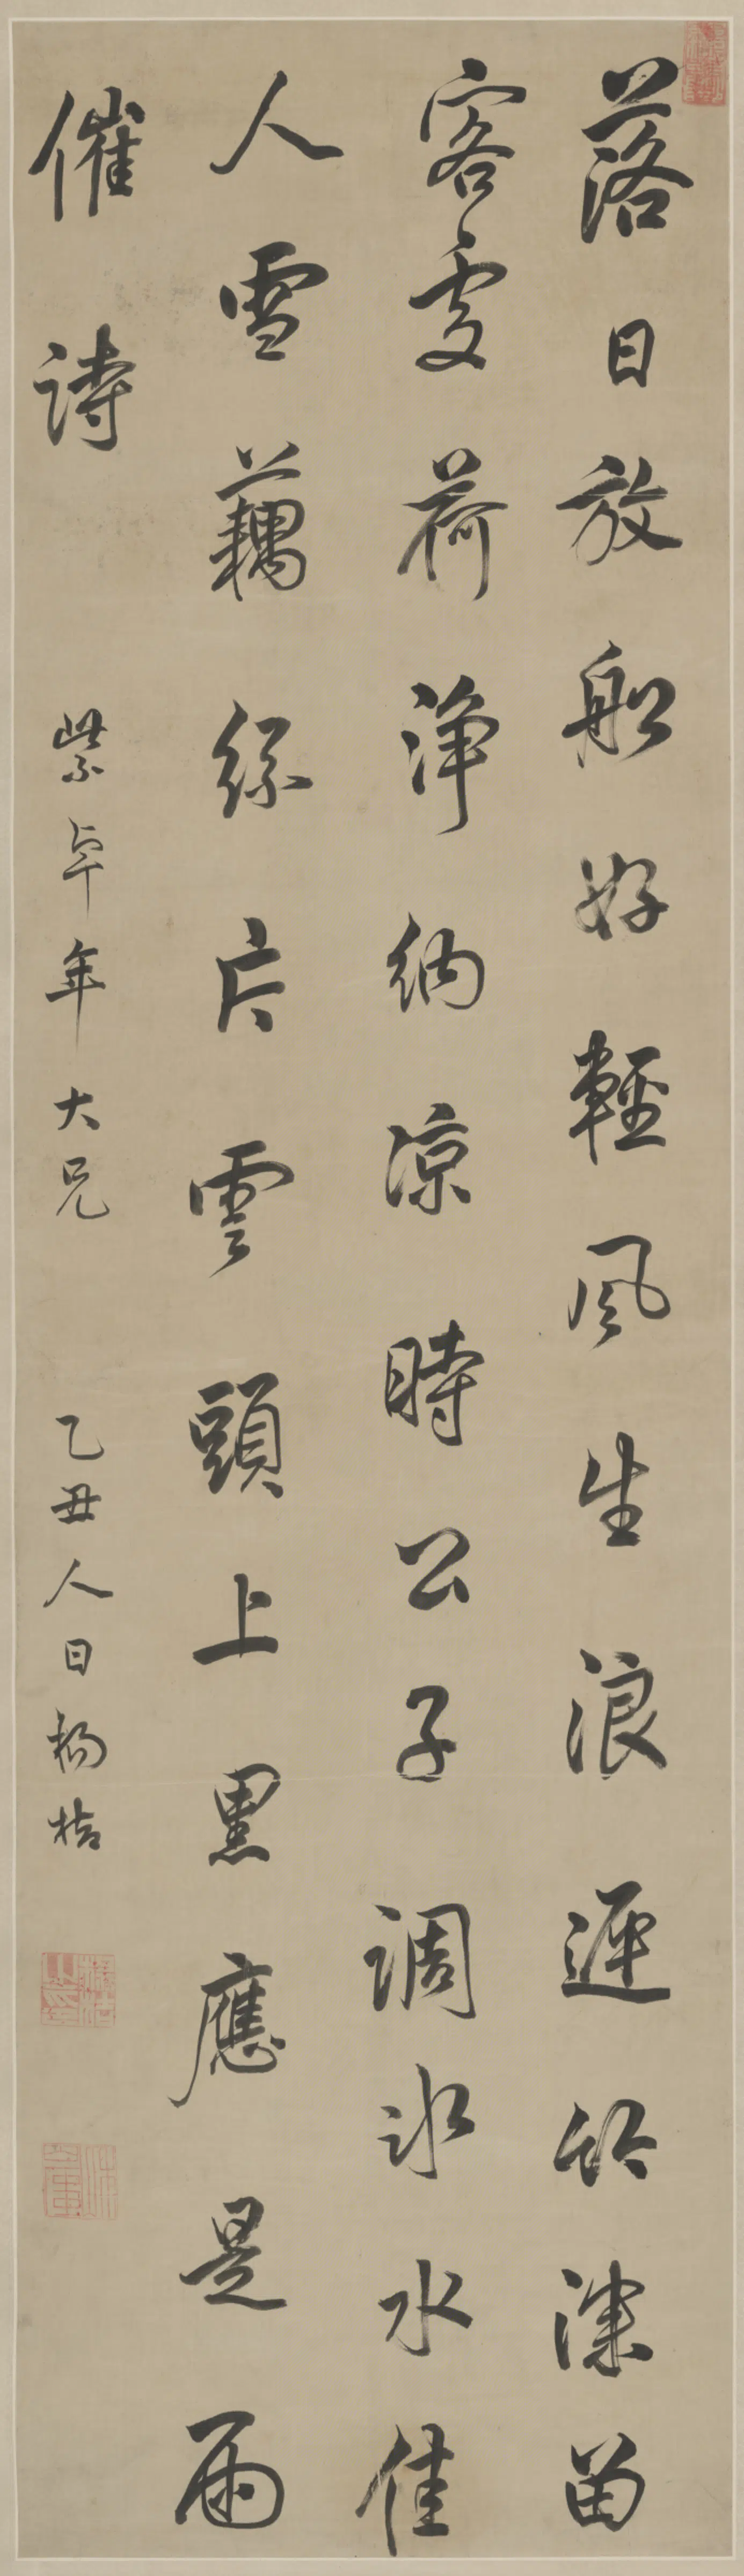 落日放船好輕風生浪遲竹深留
客處荷淨納涼時公子調冰水佳
人雪藕絲片雲頭上黑應是雨
催詩 紫卓年大兄 乙丑人日楊